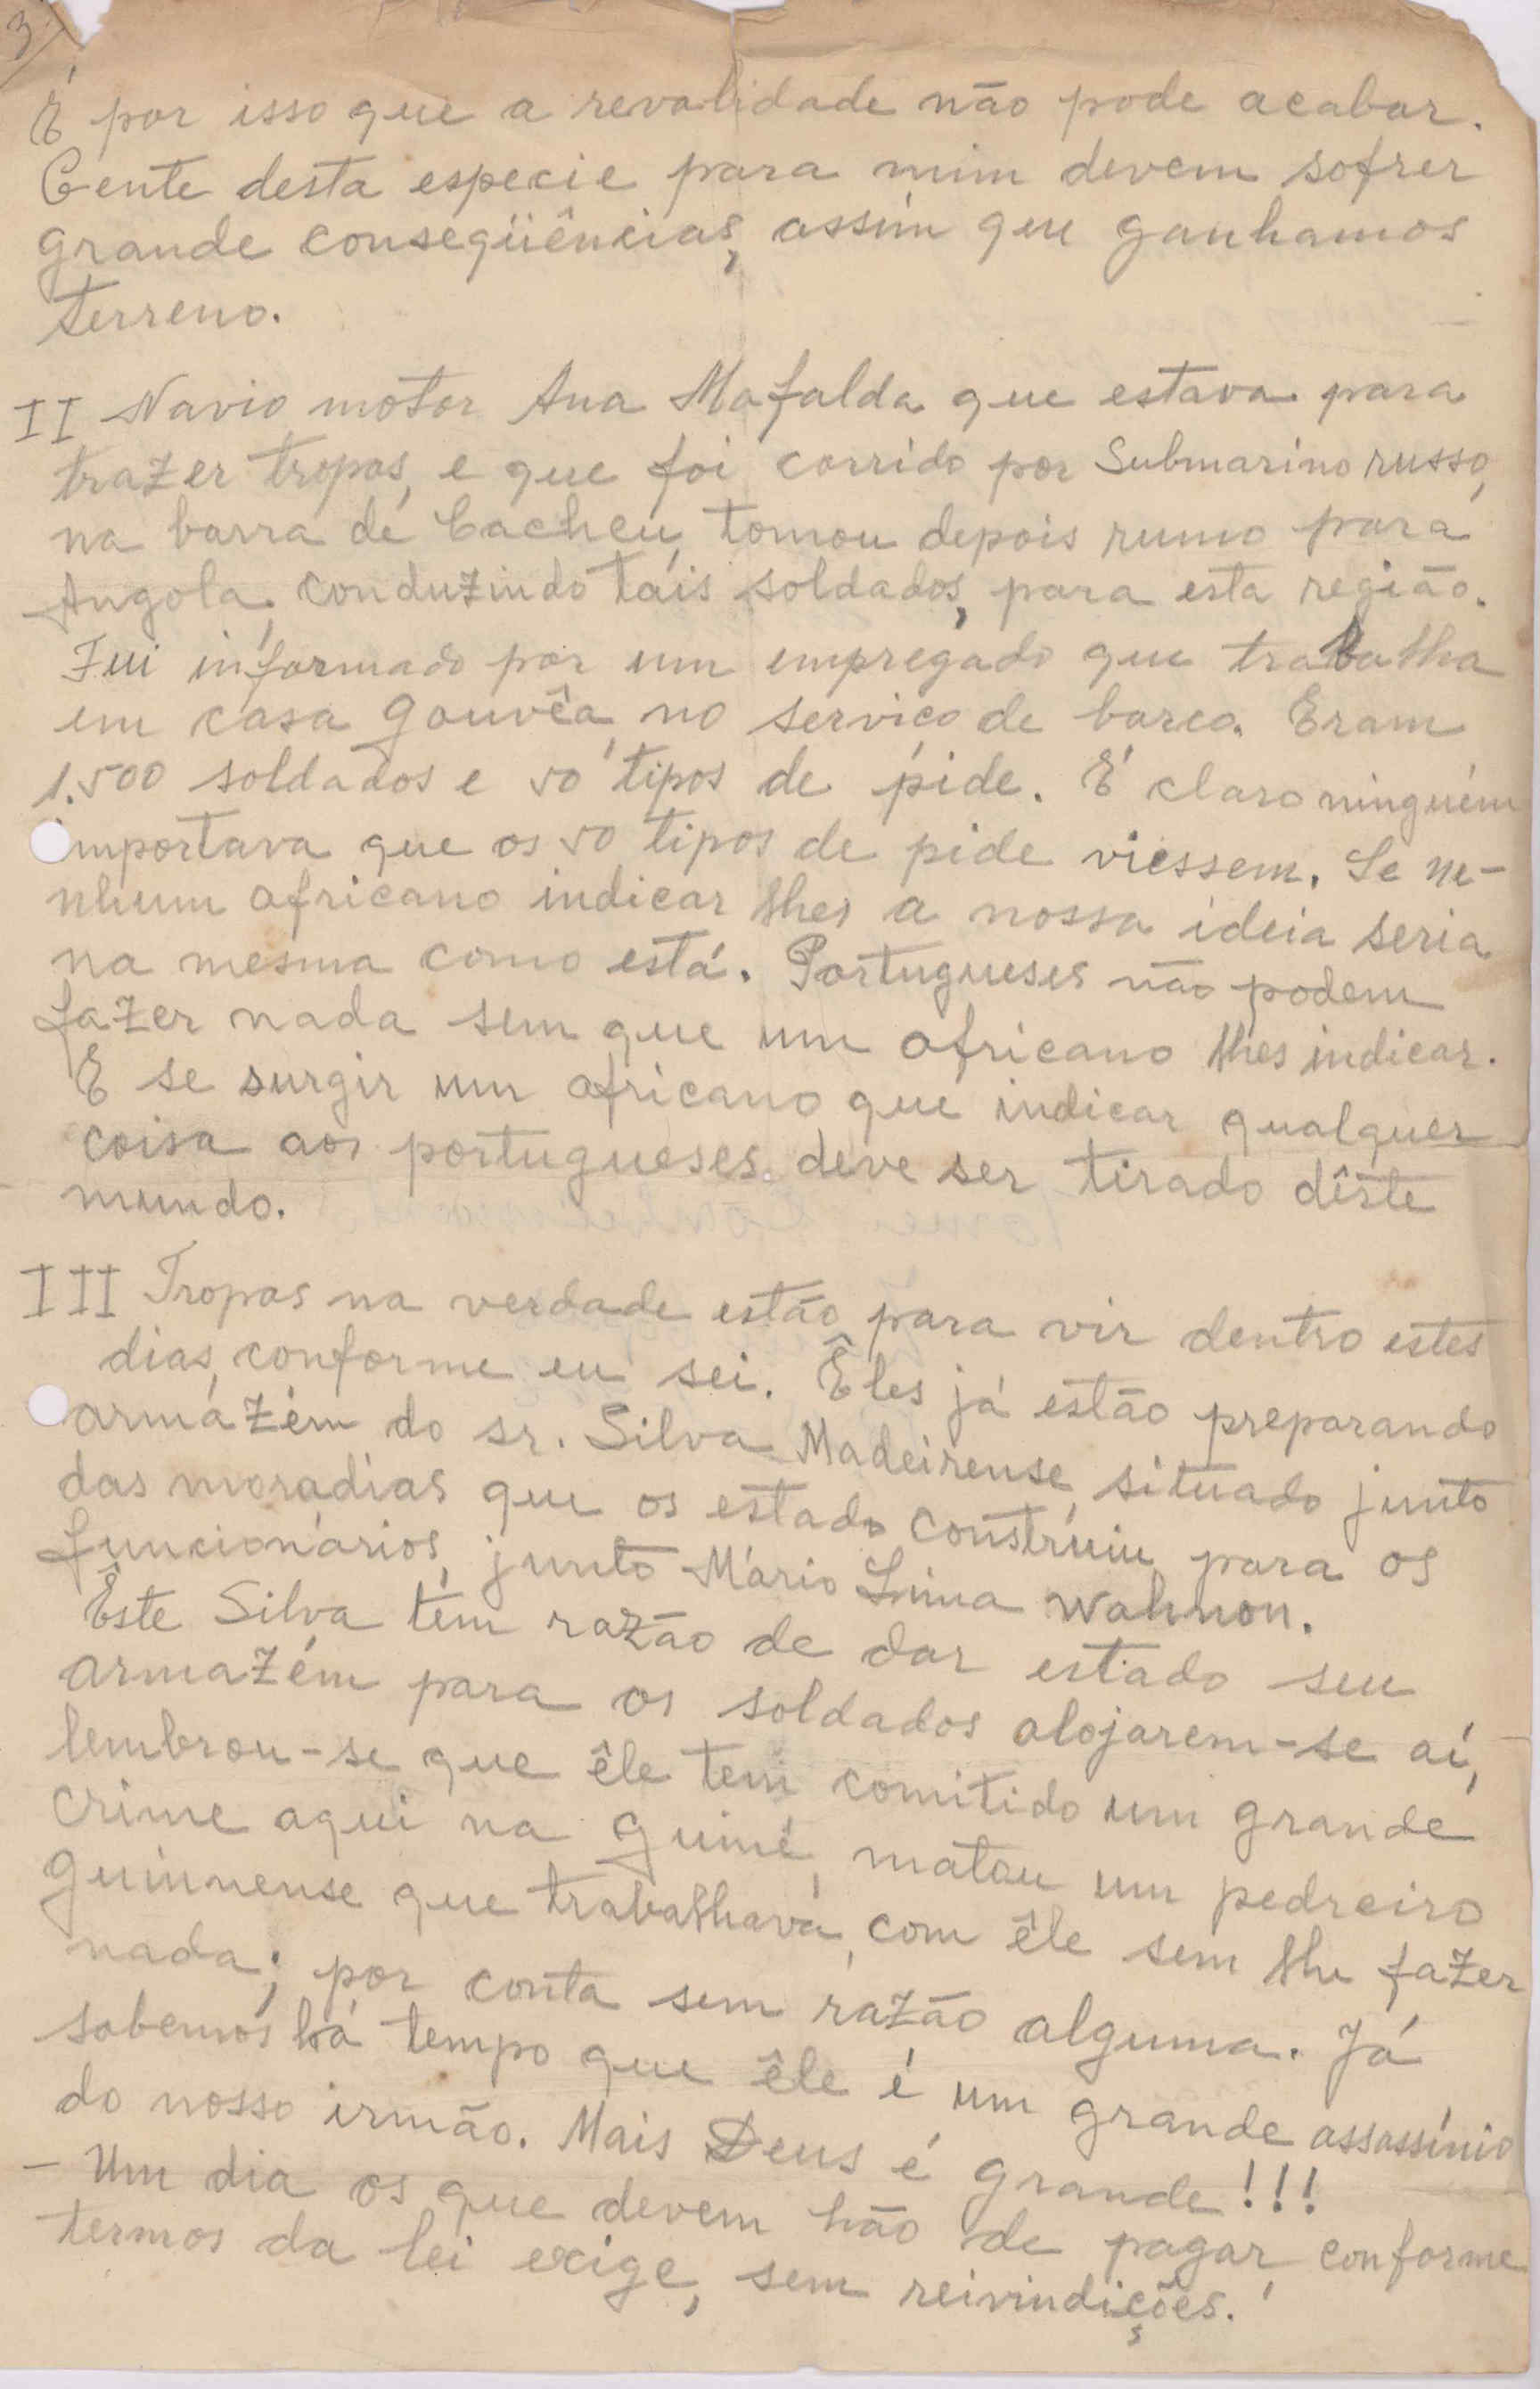 3)
É por isso que a revalidade não pode acabar.
Gente desta especie para mim devem sofrer
grande conseqüências, assim que ganhamos
terreno.
II Navio motor Ana Mafalda que estava para
trazer tropas, e que foi corrido por Submarino russo,
na barra de Cacheu, tomou depois rumo para
Angola, conduzindo tais soldados, para esta região.
Fui informado por um empregado que trabalha
em casa Gouvêa, no serviço de barco. Eram
1.500 soldados e 50 tipos de pide. É claro ninguém
importava que os 50 tipos de pide viessem. Se ne-
nhum africano indicar lhes a nossa ideia seria
na mesma como está. Portugueses não podem
fazer nada sem que um africano lhes indicar.
E se surgir um africano que indicar qualquer
coisa aos portugueses deve ser tirado dêste
mundo.
III Tropas na verdade estão para vir dentro estes
dias, conforme eu sei. Êles já estão preparando
armázém do sr. Silva Madeirense, situado junto
das moradias que os estado construiu para os
funcionários, junto Mário Lima Wahnon.
Êste Silva têm razão de dar estado seu
armazém para os soldados alojarem-se aí,
lembrou-se que êle tem comitido um grande
crime aqui na Guiné, matou um pedreiro
guinnense que trabalhava, com êle sem lhe fazer
nada; por conta sem razão alguma. Já
sabemos há tempo que êle é um grande assassínio
do nosso irmão. Mais Deus é grande!!!
- Um dia os que devem hão de pagar, conforme
termos da lei exige, sem reivindições.